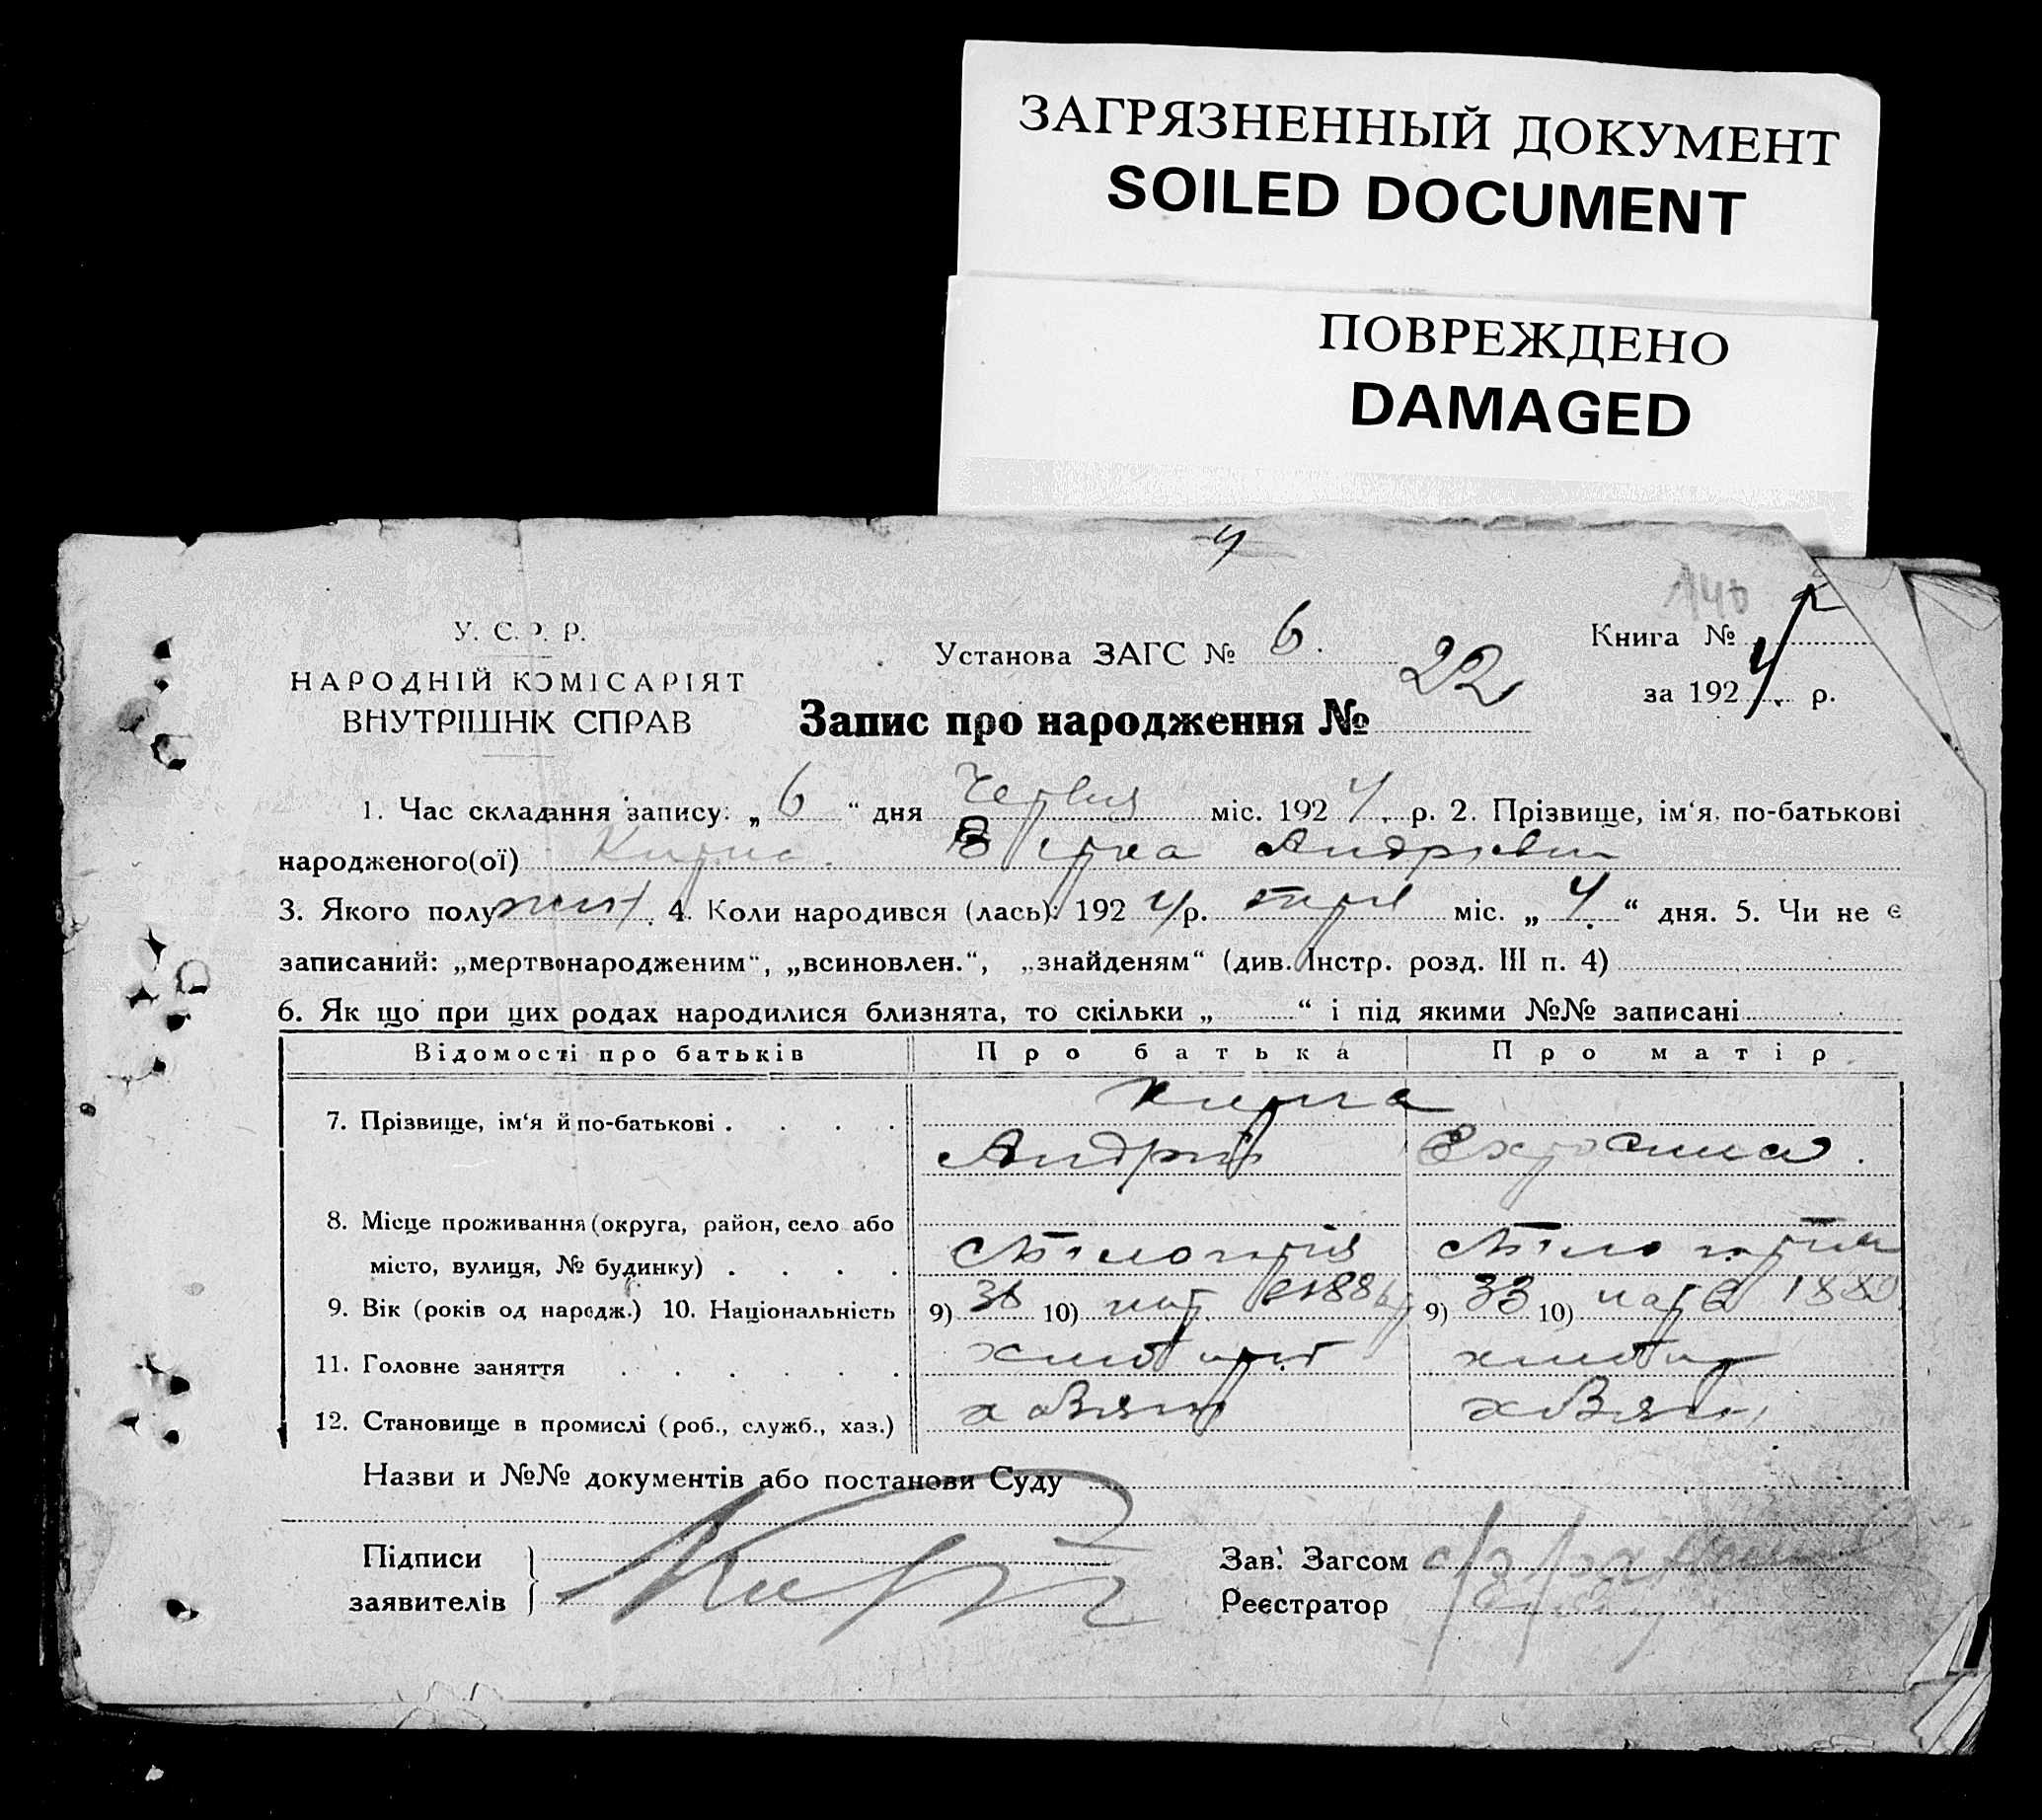 ЗАГРЯЗНЕННЫЙ ДОКУМЕНТ
SOILED DOCUMENT
ПОВРЕЖДЕНО
DAMAGED
4
140
У. С. Р. Р.
НАРОДНІЙ КОМІСАРІЯТ
ВНУТРІШНІХ СПРАВ
Установа ЗАГС № 6.
Книга №
за 1924 р.
Запис про народження № 22
1. Час складання запису: „6“ дня Червня міс. 1924 р. 2. Прізвище, ім‘я, по-батькові
народженого(ої) Кирпа
3. Якого полу 4. Коли народився (лась): 1924 р. міс. „4“ дня. 5. Чи не є
записаний: „мертвонародженим“, „всиновлен.“, „знайденям“ (див. Інстр. розд. III п. 4)
6. Як що при цих родах народилися близнята, то скільки „ “ і під якими №№ записані
Відомості про батьків Про батька Про матір
Кирпа
7. Прізвище, ім‘я й по-батькові
Андрій
8. Місце проживання (округа, район, село або
місто, вулиця, № будинку)
9. Вік (років од народж.) 10. Національність 9) 10) 9) 33 10)
11. Головне заняття
12. Становище в промислі (роб., служб., хаз.)
Назви и №№ документів або постанови Суду
Підписи
заявителів
Зав. Загсом
Реєстратор